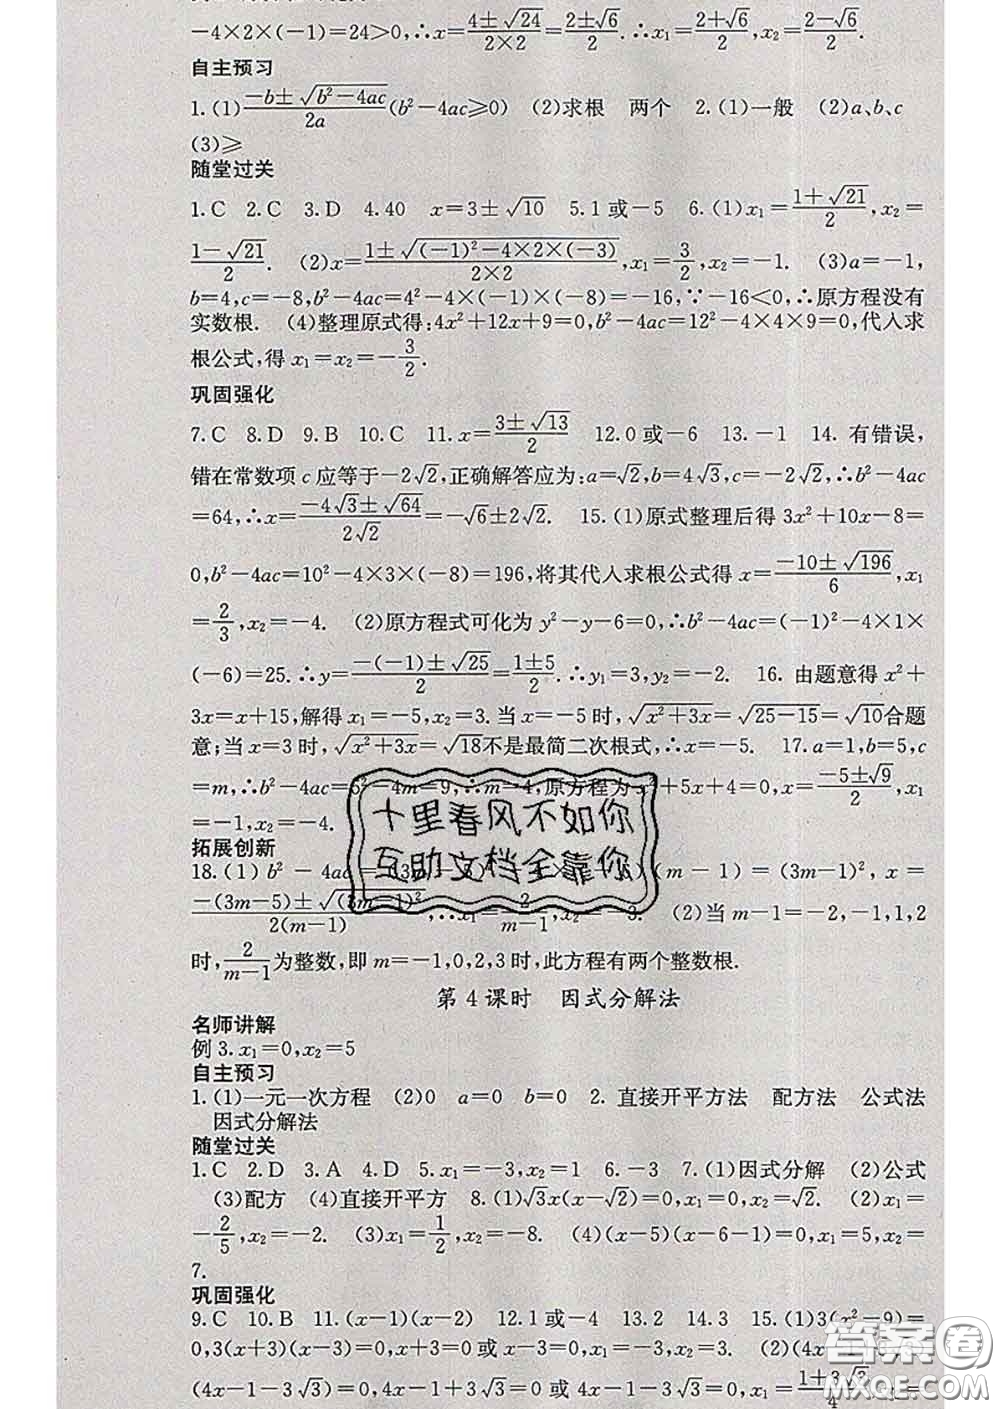 −4×2×(−1)=24>0,∴x=(4±√24)/(2×2)=(2±√6)/2.∴x₁=(2+√6)/2,x₂=(2−√6)/2.
自主预习
1.(1)(−b±√(b²−4ac))/2a(b²−4ac≥0) (2)求根 两个 2.(1)一般 (2)a、b、c
(3)≥
随堂过关
1.C 2.C 3.D 4.40 x=3±√10 5.1或−5 6.(1)x₁=(1+√21)/2,x₂=
(1−√21)/2. (2)x=(1±√((−1)²−4×2×(−3)))/(2×2),x₁=3/2,x₂=−1. (3)a=−1,
b=4,c=−8,b²−4ac=4²−4×(−1)×(−8)=−16,∵−16<0,∴原方程没有
实数根. (4)整理原式得:4x²+12x+9=0,b²−4ac=12²−4×4×9=0,代入求
根公式,得x₁=x₂=−3/2.
巩固强化
7.C 8.D 9.B 10.C 11.x=(3±√13)/2 12.0或−6 13.−1 14.有错误,
错在常数项c应等于−2√2,正确解答应为:a=√2,b=4√3,c=−2√2,∴b²−4ac
=64,∴x=(−4√3±√64)/2√2=−√6±2√2. 15.(1)原式整理后得3x²+10x−8=
0,b²−4ac=10²−4×3×(−8)=196,将其代入求根公式得x=(−10±√196)/6,x₁
=2/3,x₂=−4. (2)原方程式可化为y²−y−6=0,∴b²−4ac=(−1)²−4×1×
(−6)=25.∴y=(−(−1)±√25)/2=(1±5)/2.∴y₁=3,y₂=−2. 16.由题意得x²+
3x=x+15,解得x₁=−5,x₂=3.当x=−5时,√(x²+3x)=√(25−15)=√10合题
意;当x=3时,√(x²+3x)=√18不是最简二次根式,∴x=−5. 17.a=1,b=5,c
=m,∴b²−4ac=5²−4m=9,∴m=4,原方程为x²+5x+4=0,x=(−5±√9)/2,x₁
=−1,x₂=−4.
十里春风不如你
互助文档全靠你
拓展创新
18.(1)b²−4ac=(3m (m−1)=(3m−1)²,x=
(−(3m−5)±√(3m−1)²)/2(m−1),∴x₁=2/(m−1),x₂=−3. (2)当m−1=−2,−1,1,2
时,2/(m−1)为整数,即m=−1,0,2,3时,此方程有两个整数根.
第4课时 因式分解法
名师讲解
例3.x₁=0,x₂=5
自主预习
1.(1)一元一次方程 (2)0 a=0 b=0 2.直接开平方法 配方法 公式法
因式分解法
随堂过关
1.C 2.D 3.A 4.D 5.x₁=−3,x₂=1 6.−3 7.(1)因式分解 (2)公式
(3)配方 (4)直接开平方 8.(1)√3x(x−√2)=0,x₁=0,x₂=√2. (2)x₁=
−2/5,x₂=−2. (3)x₁=1/2,x₂=−8. (4)(x−5)(x−6−1)=0,x₁=5,x₂=
7.
巩固强化
9.C 10.B 11.(x−1)(x−2) 12.1或−4 13.2 14.3 15.(1)3(x²−9)=
0,3(x+3)(x−3)=0,x+3=0或x−3=0,x₁=−3,x₂=3. (2)(4x−1
(4x−1−3√3)=0,4x−1+3√3=0或4x−1−3√3=0,x₁=(1+3√3)/4
答案圈
MXQE.COM